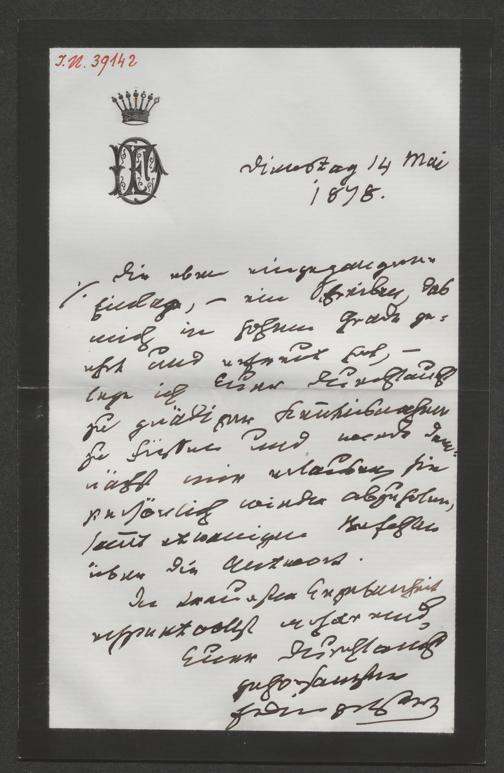 I.N. 39142
Dienstag 14 Mai
1878.
Die eben eingegangene
Einlage, – ein Schreiben, das
mich in hohem Grade ge-
ehrt und erfreut hat, –
lege ich Euer Durchlaucht
zu gnädiger Kenntnisnahme
zu Füßen und werde dem-
nächst mir erlauben sie
persönlich wieder abzuholen,
samt etwaigen Befehlen
über die Antwort.
In treuester Ergebenheit
respectvollst verharrend,
Euer Durchlaucht
gehorsamster